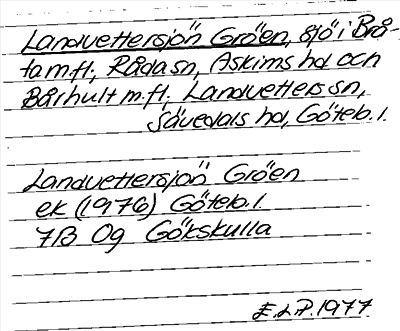 Landvettersjön Gröen, sjö i Brå-
ta m.fl., Råda sn, Askims hd och
Bårhult m.fl., Landvetters sn,
Sävedals hd, Göteb. l.
Landvettersjön Gröen
ek (1976) Göteb. l.
7B 0g Gökskulla
E.L.P. 1977